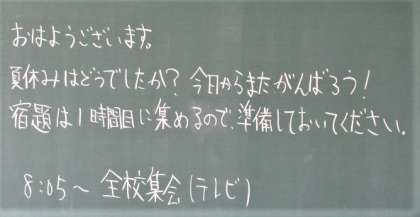 おはようございます。
夏休みはどうでしたか?今日からまたがんばろう!
宿題は1時間目に集めるので、準備しておいてください。
8:05～ 全校集会(テレビ)